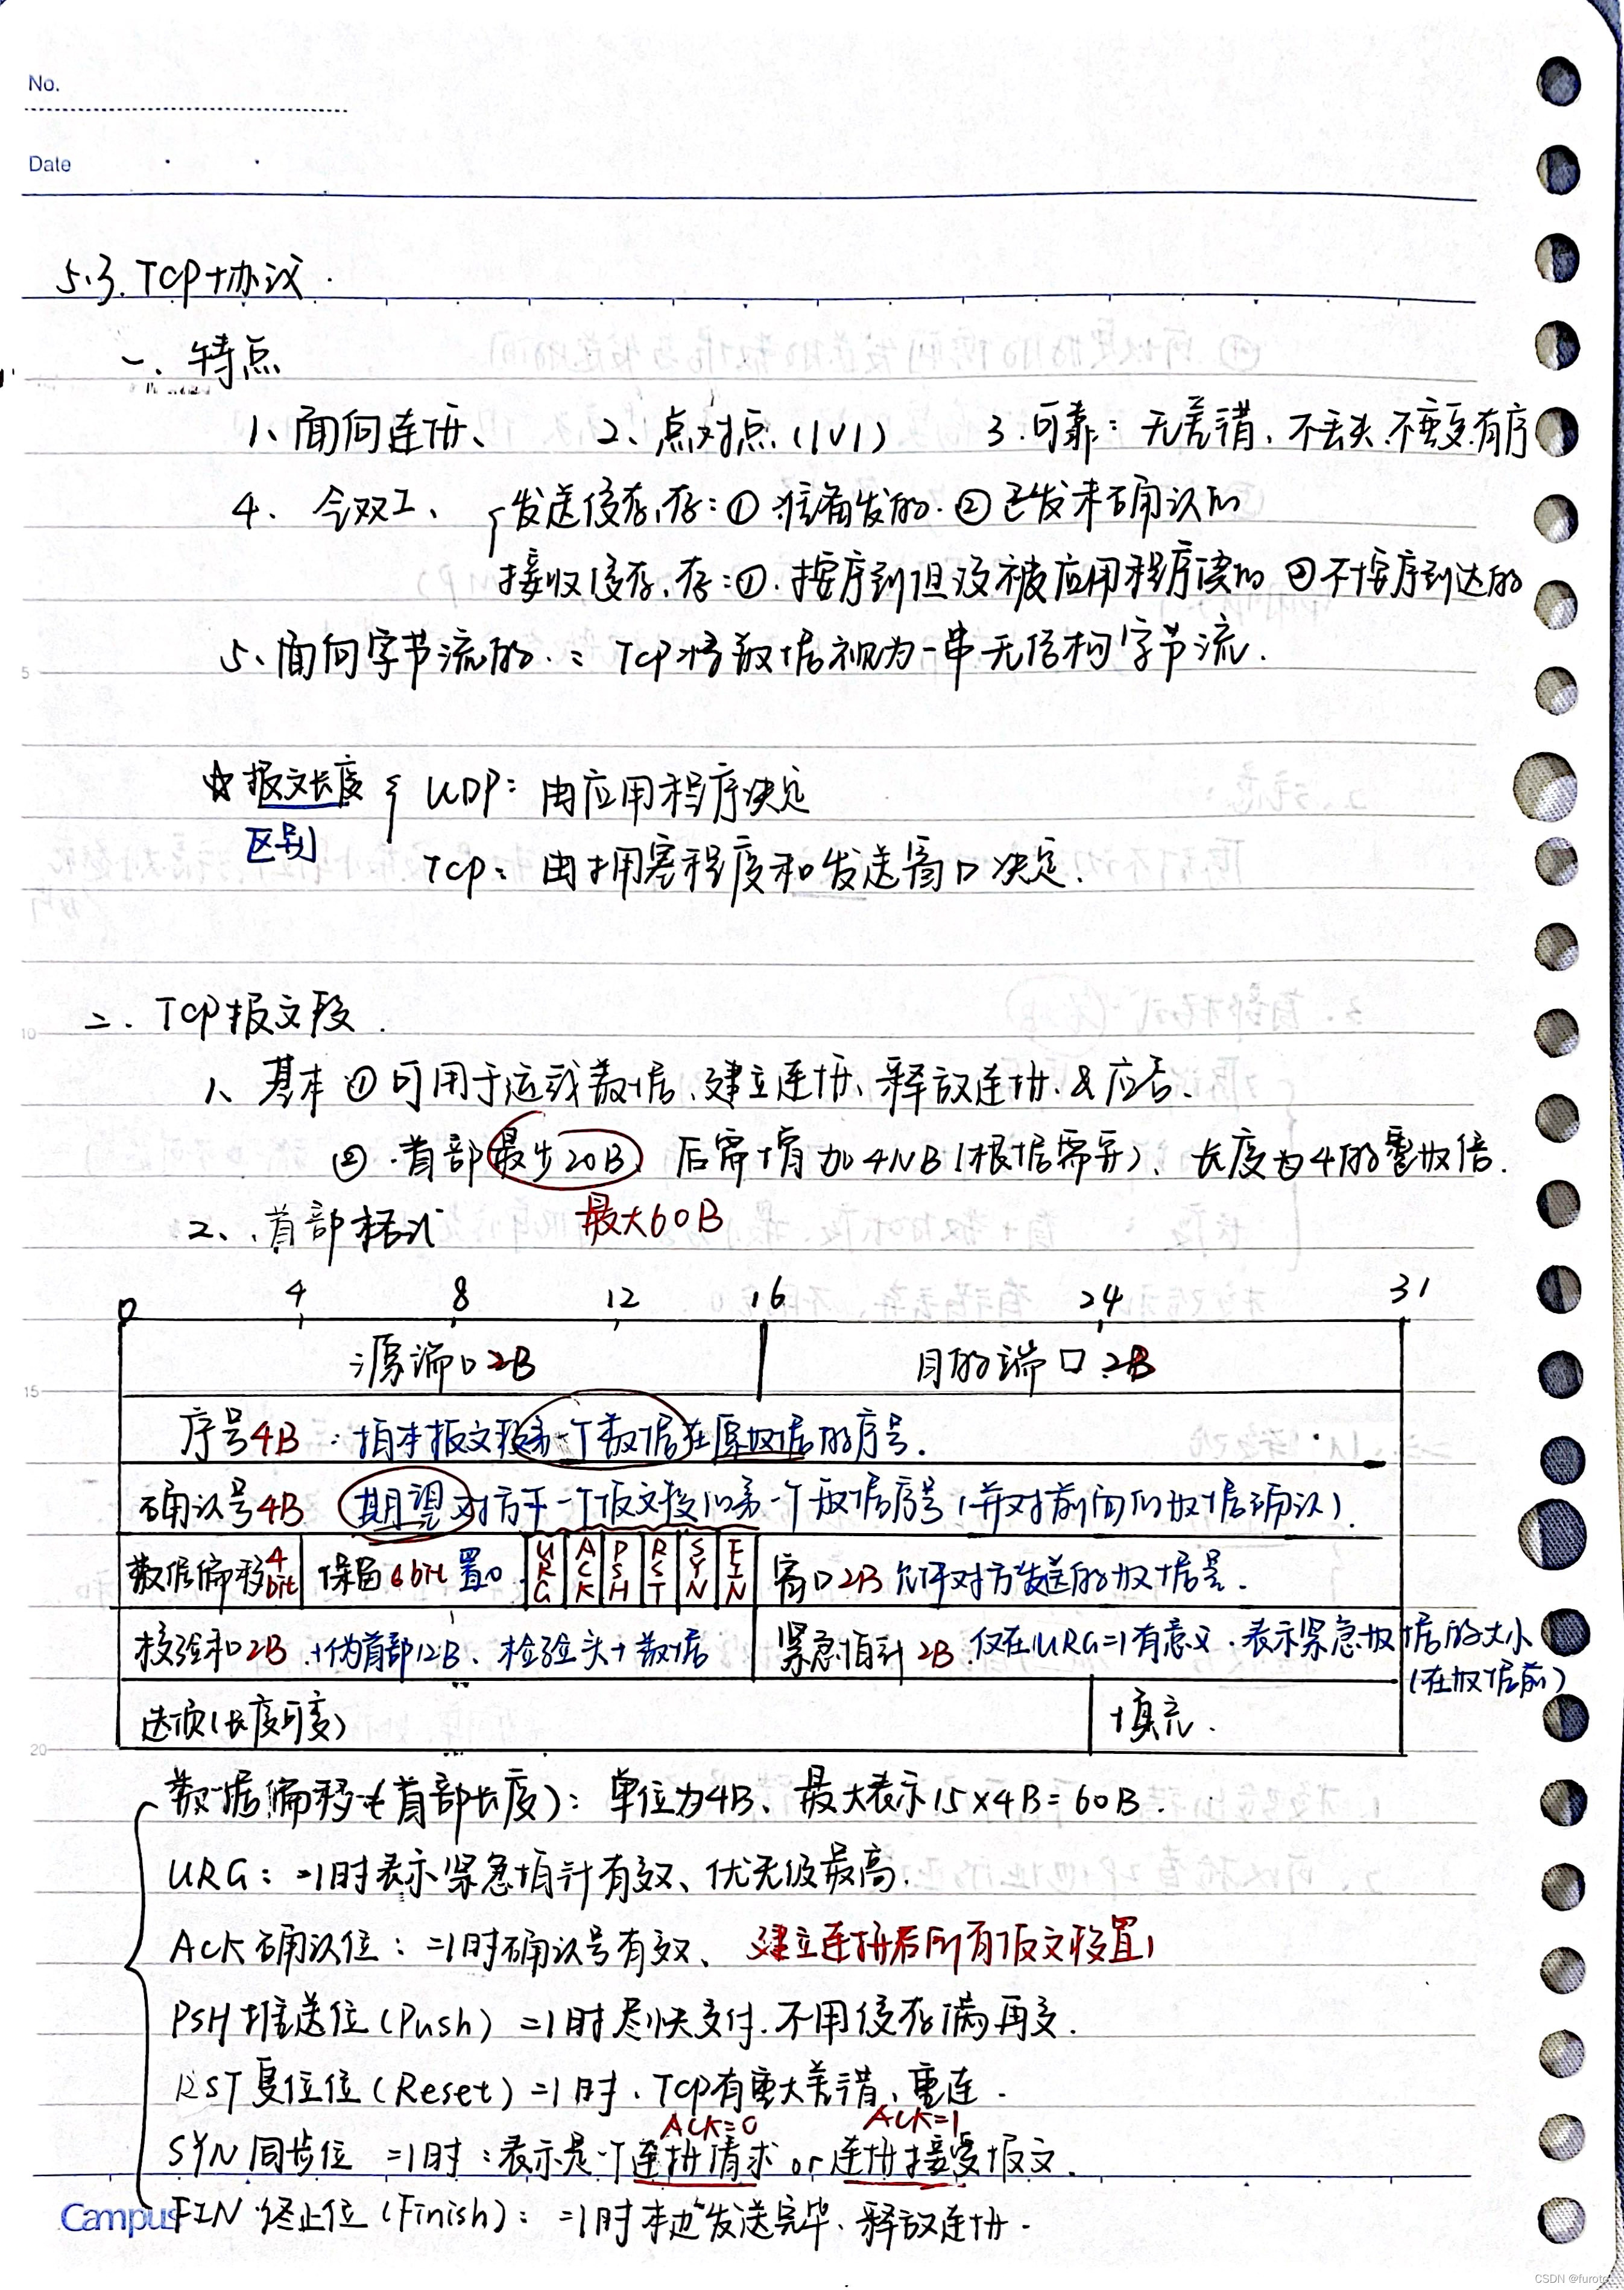 No.
Date
5.3. TCP协议.
一. 特点
1、面向连接、 2、点对点(1V1) 3.可靠: 无差错、不丢失.不重复.有序
4、全双工、 发送缓存,存:① 准备发的. ②已发未确认的
接收缓存,存:①.按序到但没被应用程序读的 ②不按序到达的
5、面向字节流的.: TCP将数据视为一串无结构字节流.
☆报文长度 { UDP: 由应用程序决定
区别
TCP: 由拥塞程度和发送窗口决定.
二. TCP报文段.
1、基本 ①可用于运载数据、建立连接、释放连接.&应答.
②.首部最少20B, 后需增加4NB(根据需要)、长度为4的整数倍.
最大60B
2、首部格式
0 4 8 12 16 24 31
源端口2B 目的端口2B
序号4B :指本报文段第一个数据在原数据的序号.
确认号4B 期望对方下一个报文段的第一个数据序号(并对前面的数据确认).
数据偏移4bit 保留6bit 置0. URG ACK PSH RST SYN FIN 窗口2B 允许对方发送的数据量.
校验和2B.+伪首部12B、检验头+数据 紧急指针2B.仅在URG=1有意义.表示紧急数据的大小
(在数据前)
选项(长度可变) 填充.
数据偏移(首部长度): 单位为4B、最大表示15×4B=60B.
URG: =1时表示紧急指针有效、优先级最高.
ACK确认位: =1时确认号有效、建立连接后所有报文段置1
PSH推送位(Push) =1时尽快交付.不用缓存满再交.
RST复位位(Reset)=1时.TCP有重大差错、重连.
ACK=0 ACK=1
SYN同步位 =1时:表示是一个连接请求or连接接受报文.
Campus FIN 终止位(Finish): =1时本边发送完毕、释放连接.
CSDN @furote